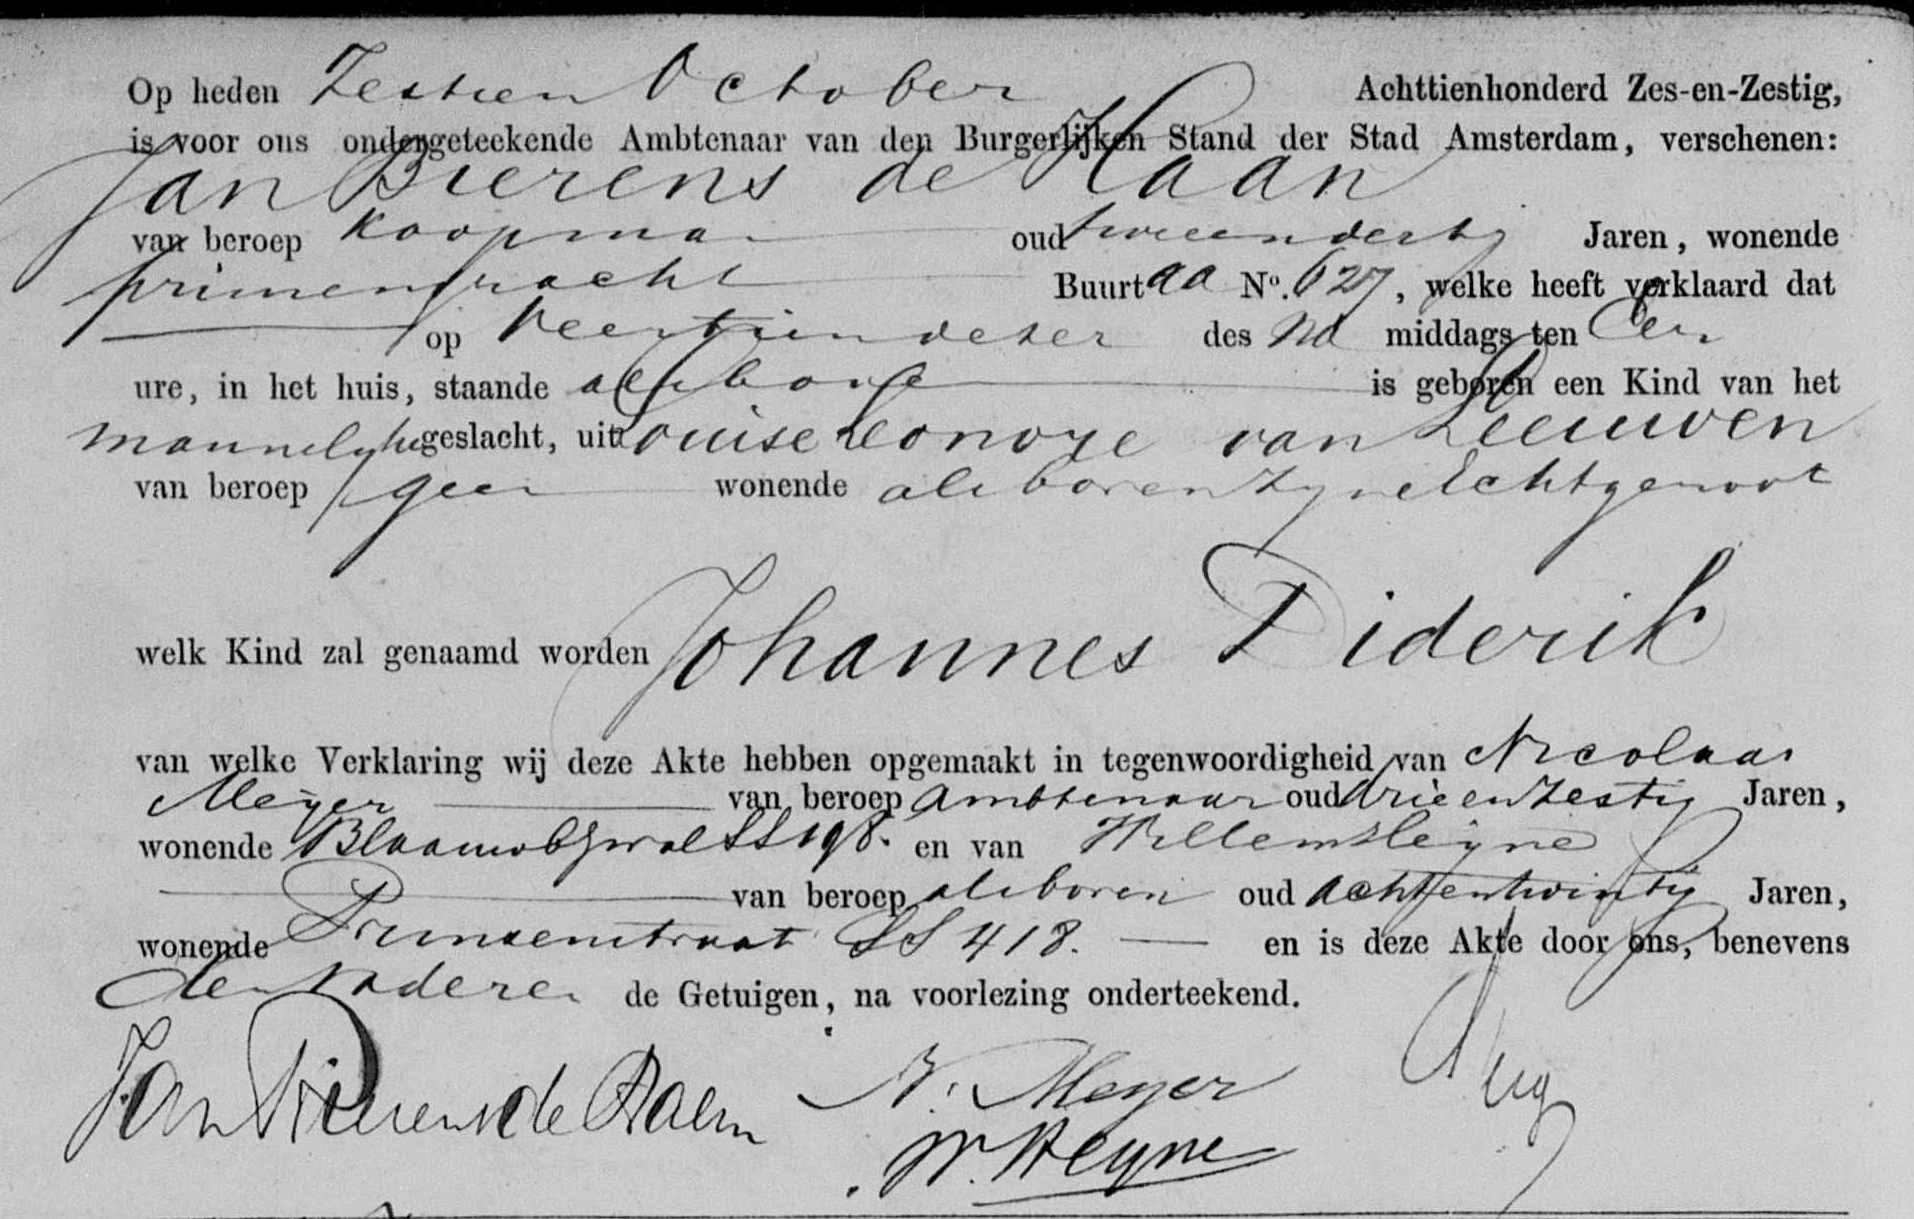 Op heden Zestien October Achttienhonderd Zes-en-Zestig,
is voor ons ondergeteekende Ambtenaar van den Burgerlijken Stand der Stad Amsterdam, verschenen:
Jan Bierens de Haan
van beroep Koopman oud tweeendertig Jaren, wonende
prinsengracht Buurt aa No. 627, welke heeft verklaard dat
op Veertien deser des Na middags ten Een
ure, in het huis, staande als boven is geboren een Kind van het
mannelyke geslacht, uit Louise Leonore van Leeuwen
van beroep geen wonende als boven zyne Echtgenoot
welk Kind zal genaamd worden Johannes Diderik
van welke Verklaring wij deze Akte hebben opgemaakt in tegenwoordigheid van Nicolaas
Meijer van beroep ambtenaar oud drieenzestig Jaren,
wonende SS 198. en van Willem Heijne
van beroep als boven oud achtentwintig Jaren,
wonende Prinsenstraat SS 418. en is deze Akte door ons, benevens
den Vader en de Getuigen, na voorlezing onderteekend.
Jan Bierens de Haan N. Meyer
W. Heyne